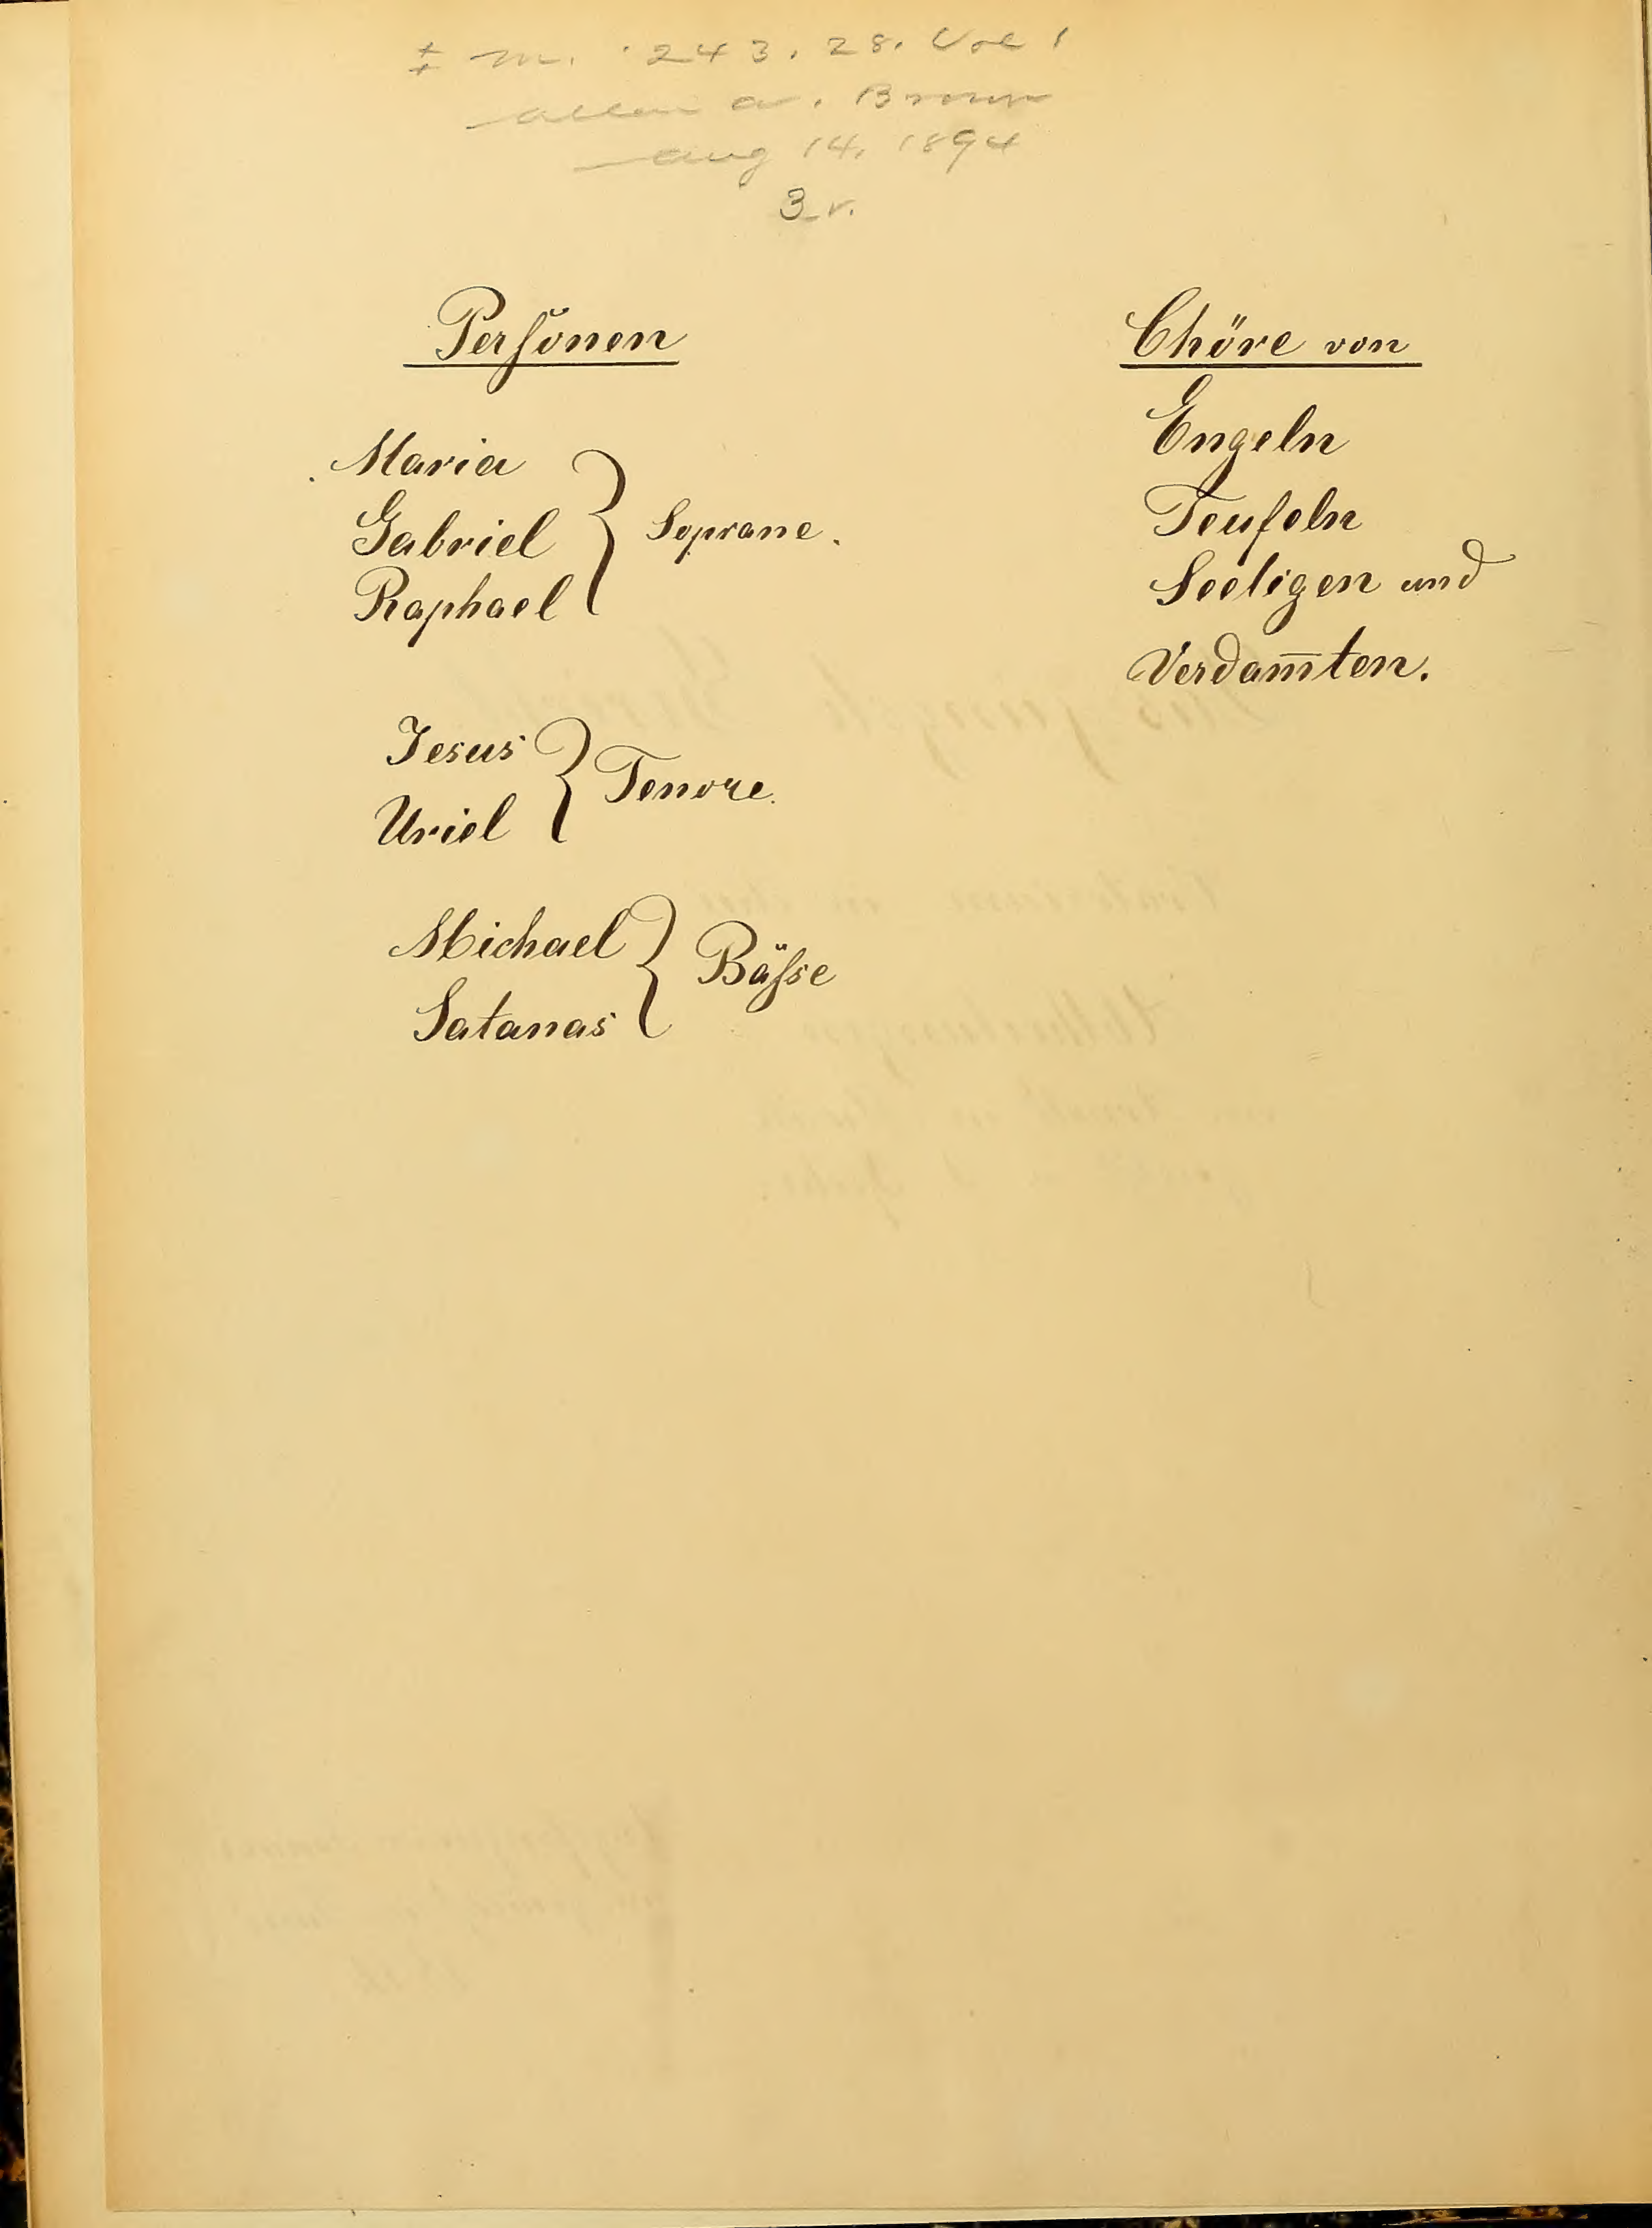 ‡ M. 243. 28. Vol 1
Allen A. Brown
Aug 14. 1894
3 v.
Perſonen
Maria
Gabriel
Raphael
Soprane.
Jesus
Uriel
Tenore.
Michael
Satanas
Bäſse
Chöre von
Engeln
Teufeln
Seeligen und
Verdam̅ten.